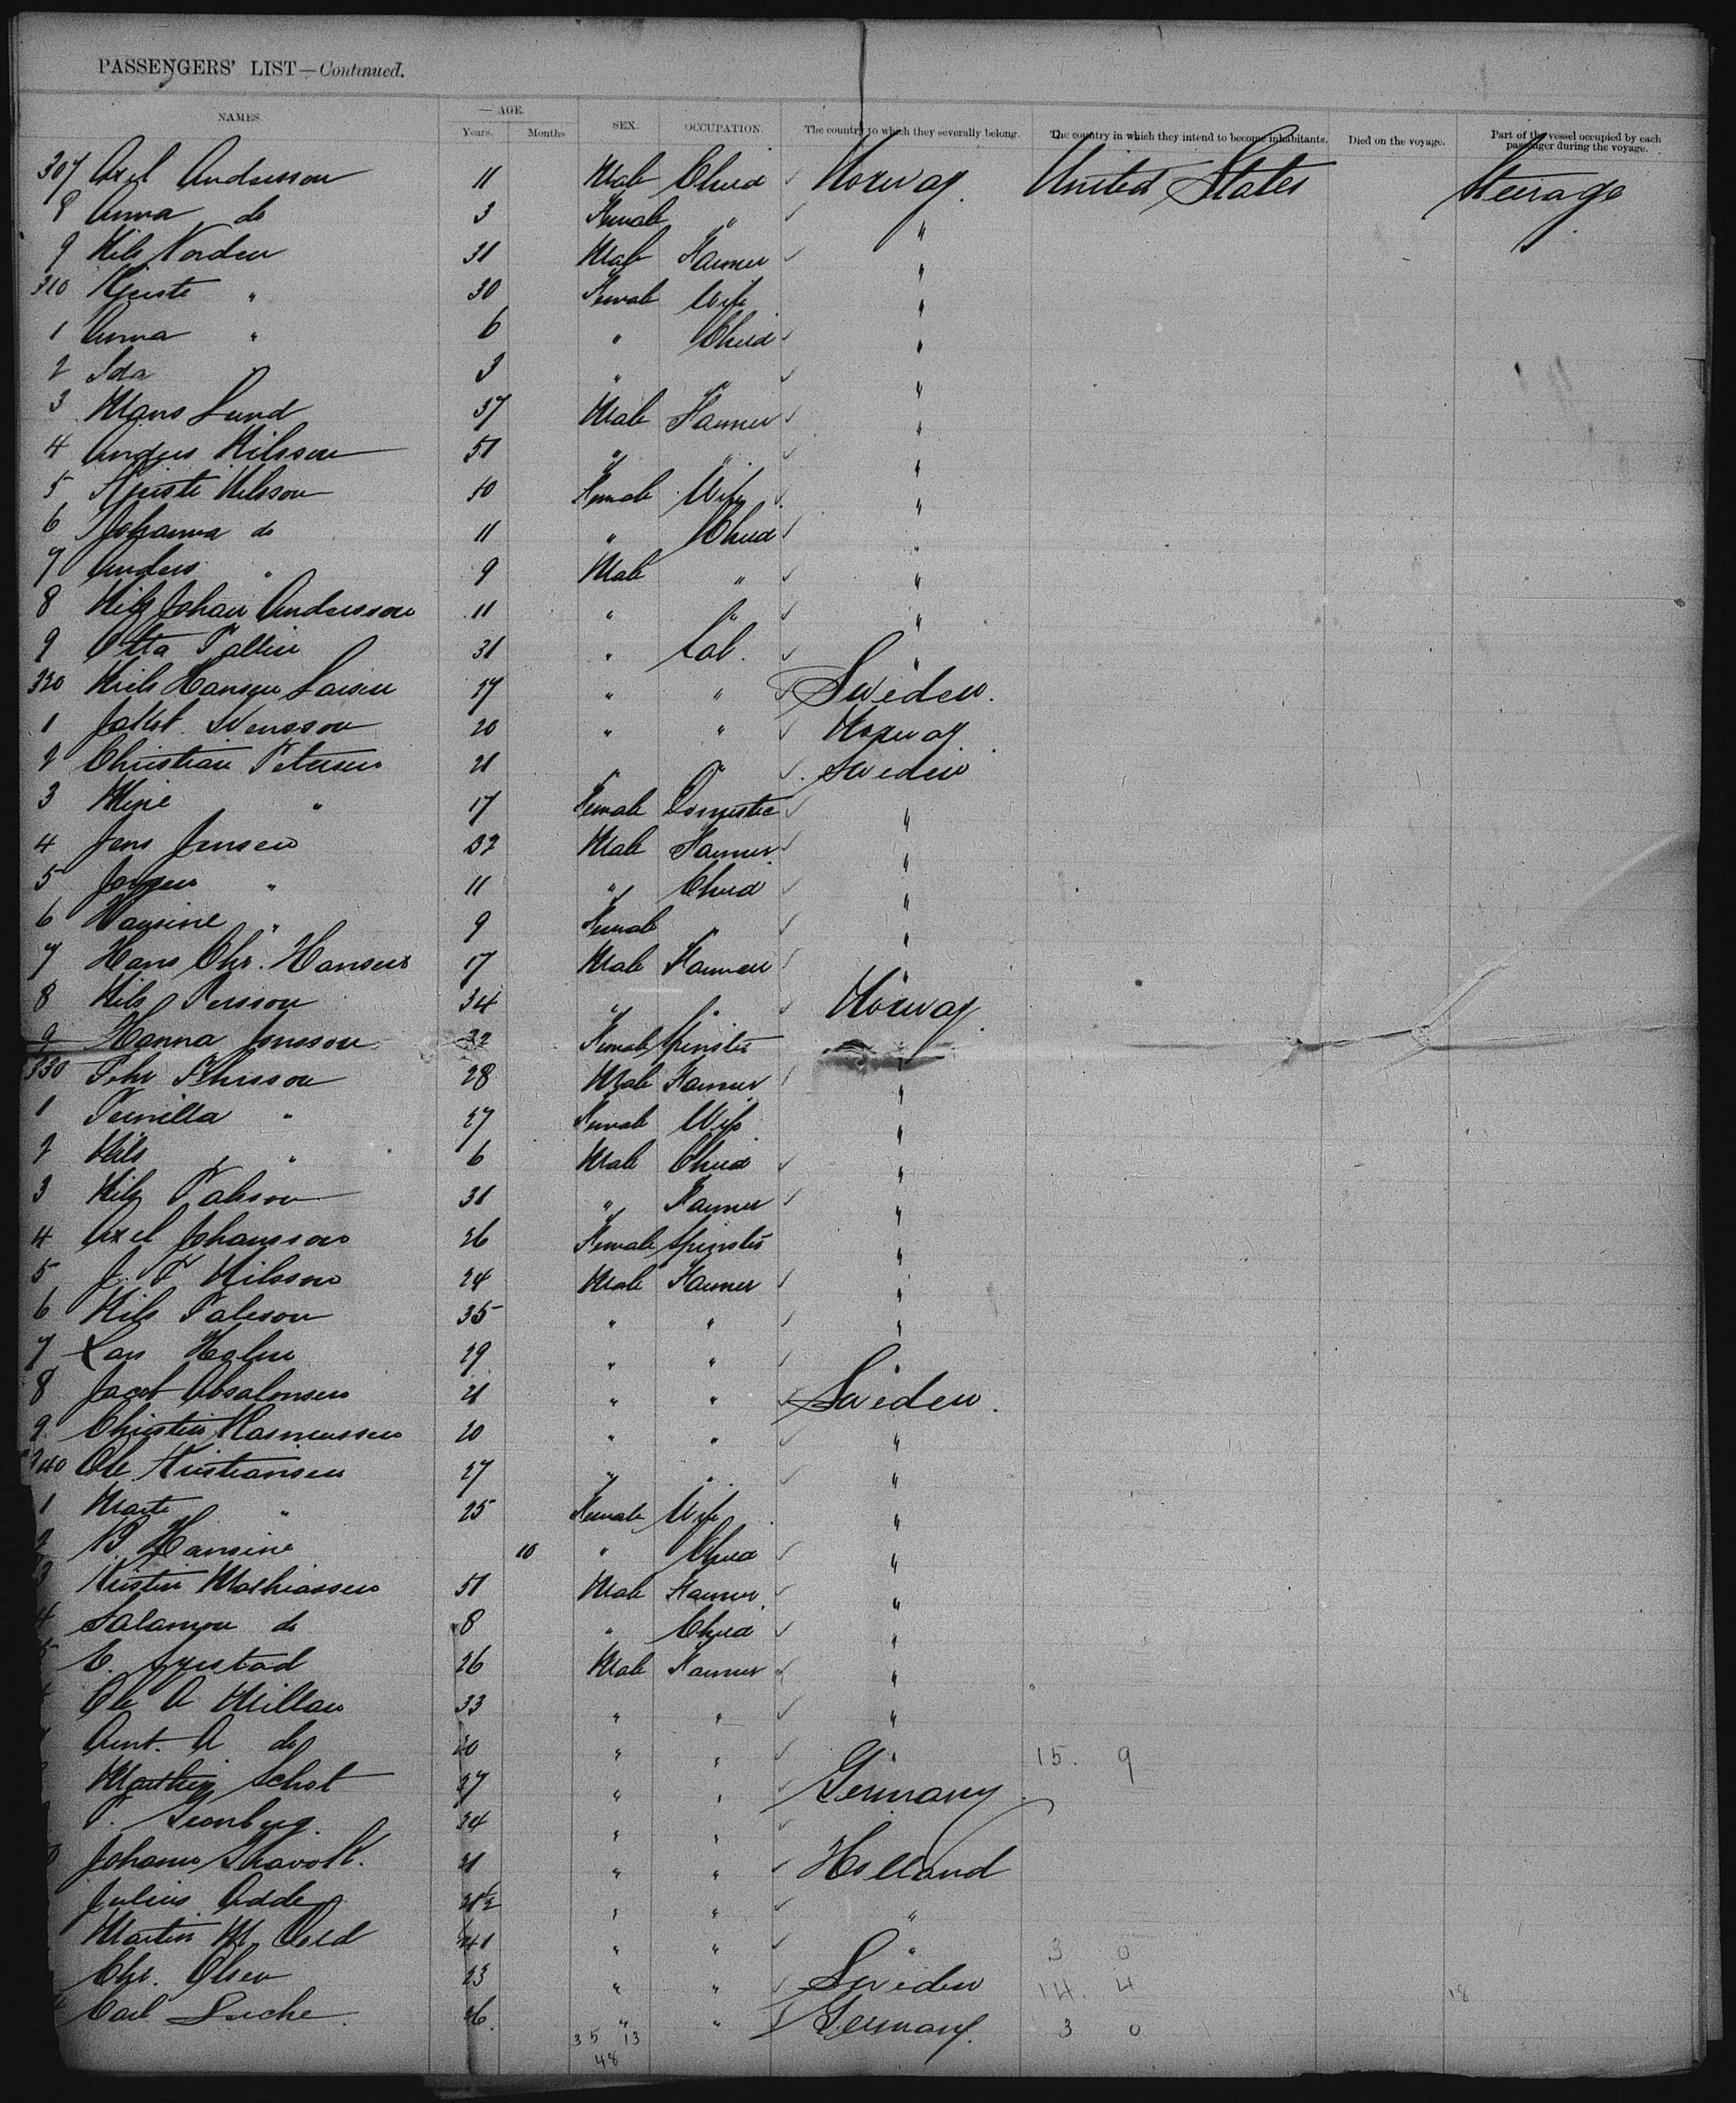 PASSENGERS' LIST—Continued.
NAMES. AGE. SEX. OCCUPATION. The country to which they severally belong. The country in which they intend to become inhabitants. Died on the voyage. Part of the vessel occupied by each passenger during the voyage.
Years. Months
307 Axel Andersson 11 Male Child ✓ Norway. United States Steerage
8 Anna do 3 Female " ✓ "
9 Nils Norden 31 Male Farmer ✓ "
310 Kjersti " 30 Female Wife "
1 Anna " 6 " Child ✓ "
2 Ida " 3 " " ✓ "
3 Mans Lund 37 Male Farmer ✓ "
4 Anders Nilsson 51 " " ✓ "
5 Kjersti Nilsson 50 Female Wife "
6 Johanna do 11 " Child ✓ "
7 Anders " 9 Male " ✓ "
8 Nils Johan Andersson 11 " " ✓ "
9 Otta Pallin 31 " Lab. ✓ "
320 Niels Hansen Larsen 27 " " ✓ Sweden.
1 Jakob Svensson 20 " " ✓ Norway.
2 Christian Petersen 21 " " ✓ Sweden
3 Mine " 17 Female Domestic ✓ "
4 Jens Jensen 32 Male Farmer ✓ "
5 Jorgen " 11 " Child ✓ "
6 Hansine " 9 Female " ✓ "
7 Hans Chr. Hansen 17 Male Farmer ✓ "
8 Nils Persson 34 " " ✓ Norway.
9 Hanna Jonsson 22 Female Spinster "
330 Pehr Pehrsson 28 Male Farmer ✓ "
1 Pernilla " 27 Female Wife "
2 Nils " 6 Male Child ✓ "
3 Nils Palsson 31 " Farmer ✓ "
4 Axel Johansson 26 Female Spinster "
5 J. P Nilsson 24 Male Farmer ✓ "
6 Nils Paleson 35 " " ✓ "
7 Lars Holm 29 " " ✓ "
8 Jacob Absalonsen 21 " " ✓ Sweden.
9 Christen Rasmussen 20 " " ✓ "
340 Ole Kristiansen 27 " " ✓ "
1 Marte " 25 Female Wife "
2 B Hansine 10 " Child ✓ "
3 Kristen Mathiassen 51 Male Farmer ✓ "
4 Salamon do 8 " Child ✓ "
5 C. 26 Male Farmer ✓ "
Ole A Millan 33 " " ✓ "
Aint. A do 20 " " ✓ " 15. 9
Schot 27 " " ✓ Germany
P. 24 " " ✓
Johann 21 " " ✓ Holland
Julius 21½ " " ✓ "
Martin M. 41 " " ✓ " 3 0
Chr. Olsen 23 " " ✓ Sweden 14. 4 18
Carl 26. " " ✓ Germany. 3 0
35 13
48